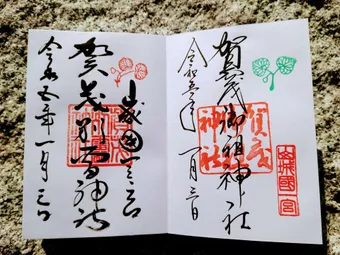 山城國一宮
賀茂御祖神社
賀茂
神社
令和五年一月三日
山城国一之宮
賀茂別雷神社
令和五年一月三日